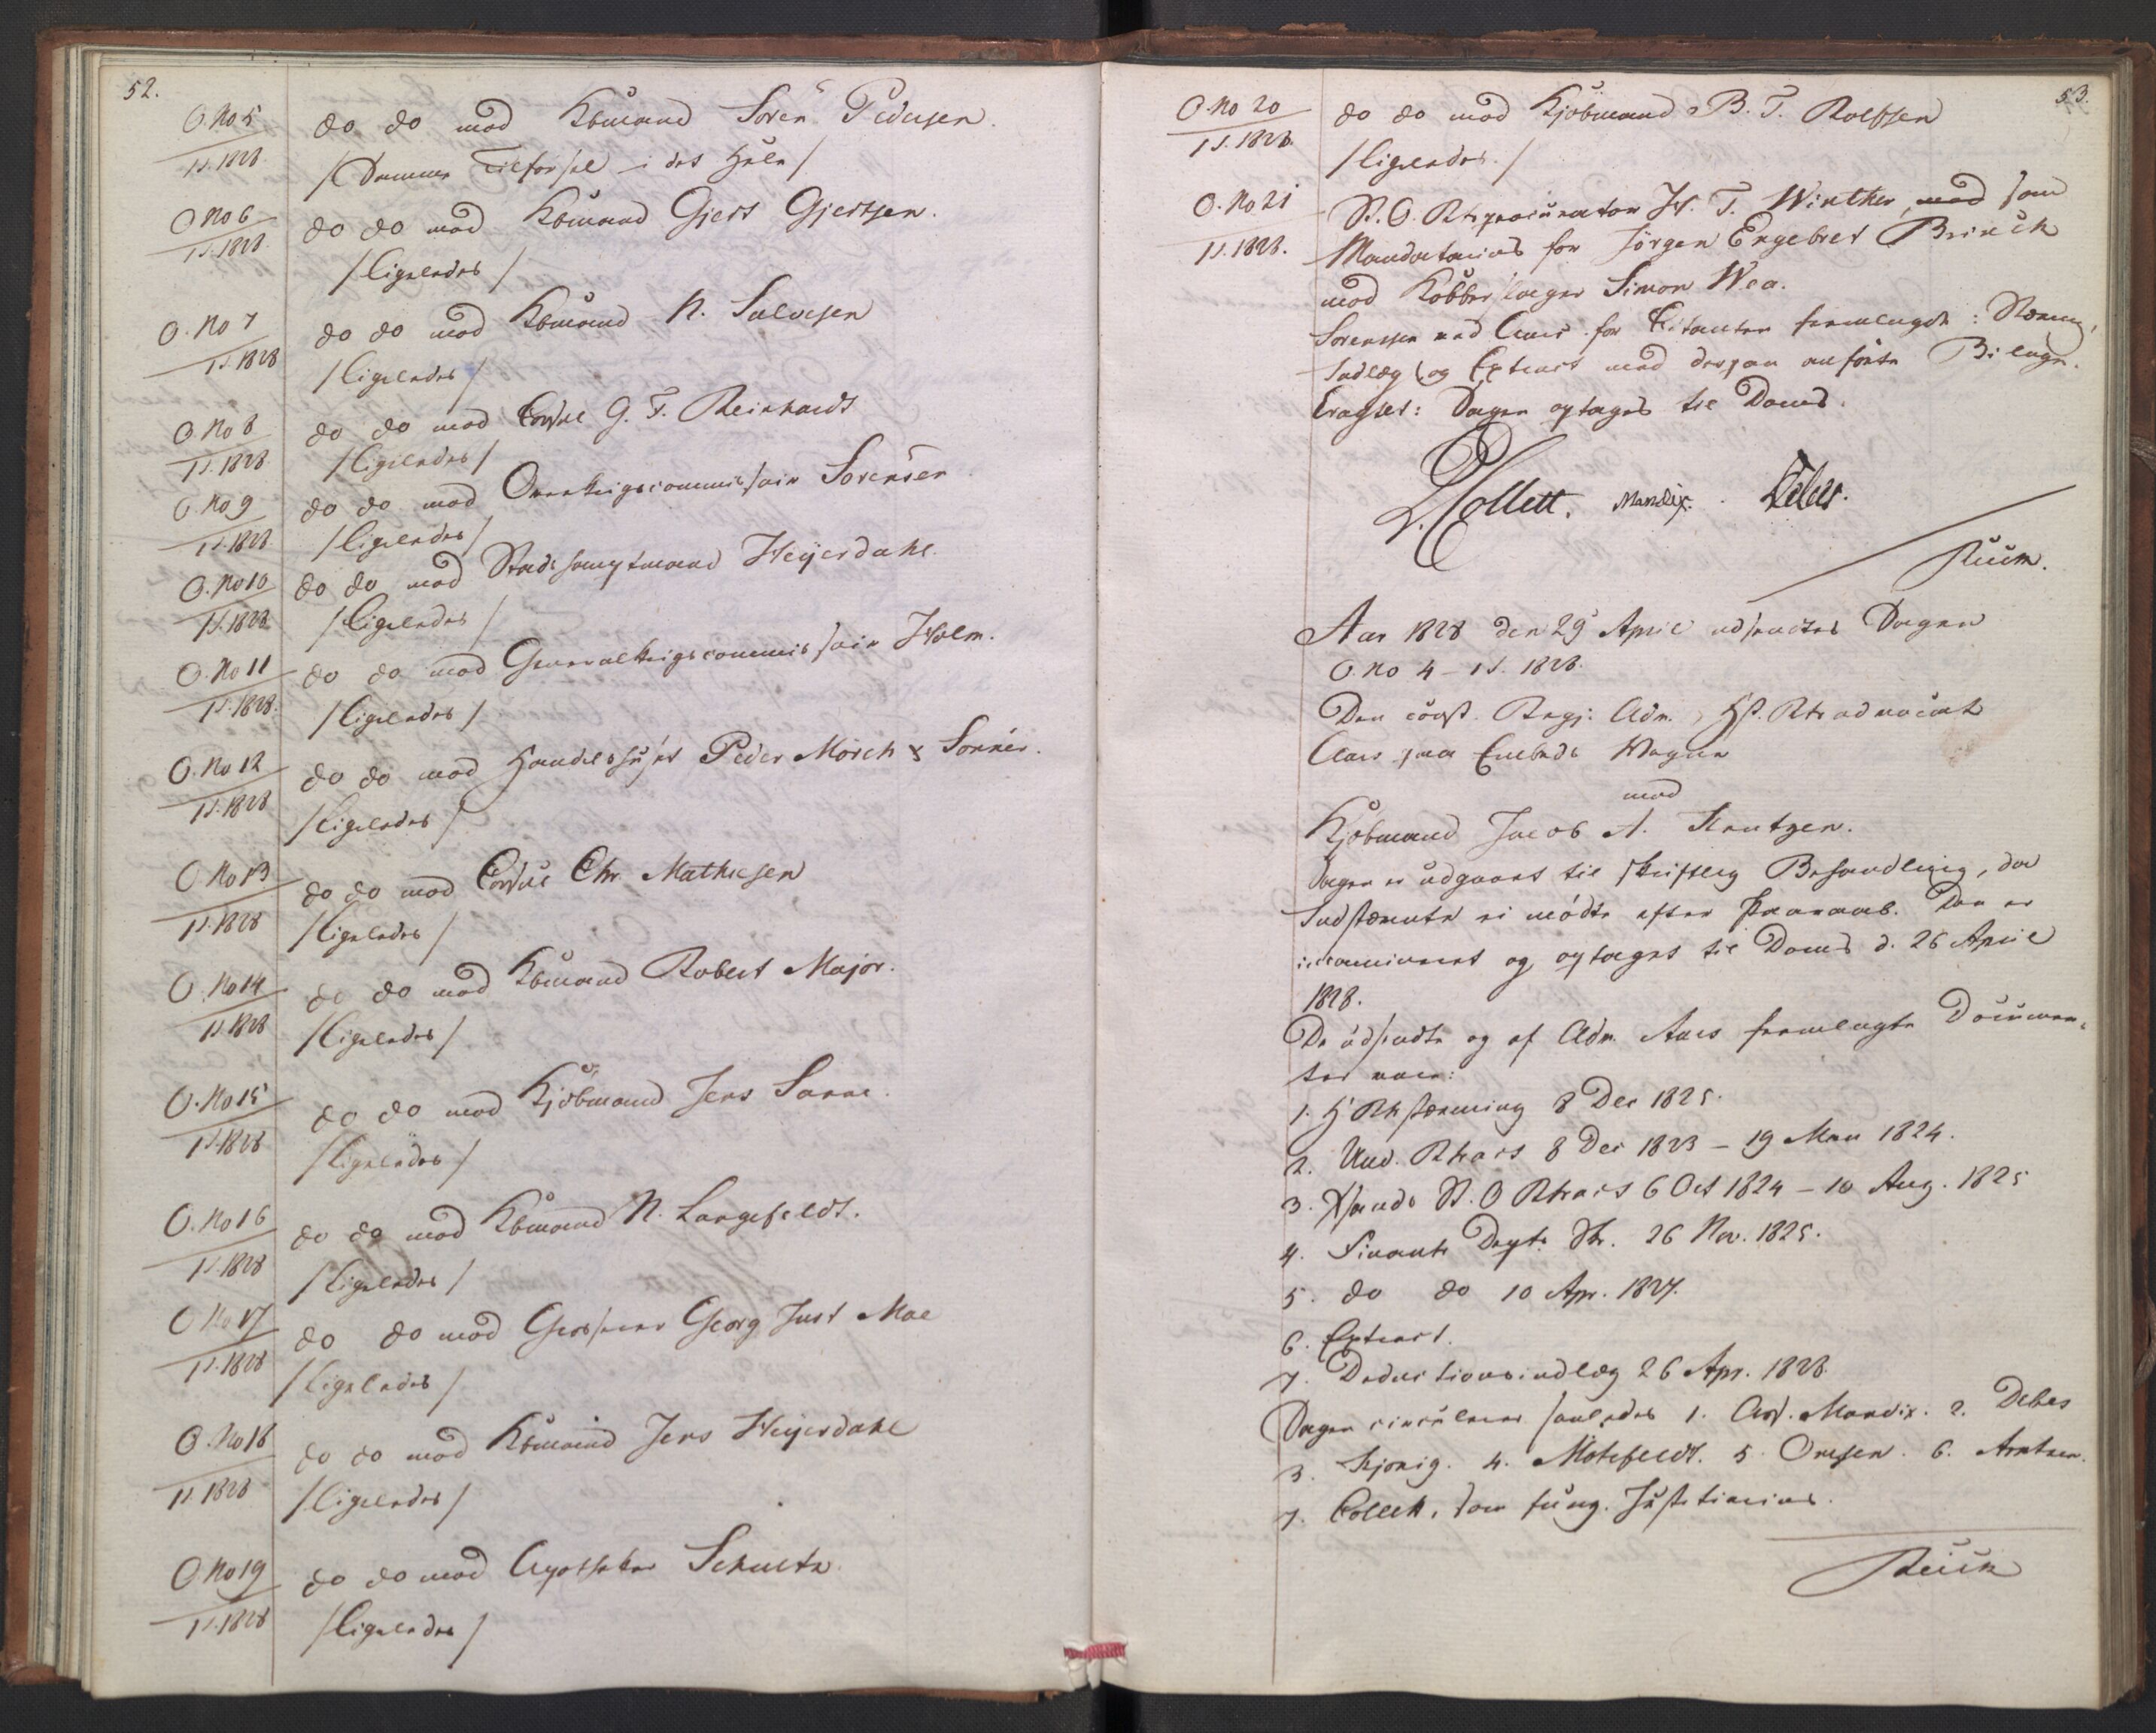 52.
O. No 5
1 S. 1828.
do do mod Kbmand Sören Pedersen.
/Samme Tilførsel i det Hele/
O No 6
1 S. 1828.
do do mod Kbmand Gjert Gjertsen.
/Ligeledes/
O. No 7
1 S. 1828
do do mod Kbmand N. Salvesen
/Ligeledes/
O. No 8
1 S. 1828
do do mod Consul G. F. Reinhardt
/Ligeledes/
O. No 9
1 S. 1828
do do mod Overkrigscommissair Sorensen
/Ligeledes/
O. No 10
1 S. 1828
do do mod Stadshauptmand Heyerdahl.
/Ligeledes/
O. No 11
1 S. 1828.
do do mod Generalkrigscommissair Holm.
/Ligeledes/
O. No 12
1 S. 1828
do do mod Handelshuset Peder Mörch & Sönner.
/Ligeledes/
O. No 13
1 S. 1828
do do mod Consul Chr. Mathiesen
/Ligeledes/
O. No 14
1 S. 1828
do do mod Kbmand Robert Major.
/Ligeledes/
O. No 15
1 S. 1828
do do mod Kjöbmand Jens Lanne.
/Ligeledes/
O. No 16
1 S. 1828
do do mod Kbmand N. Langefeldt.
/Ligeledes/
O No 17
1 S. 1828
do do mod Grosserer Georg Just Moe
/Ligeledes/
O. No 18
1 S. 1828
do do mod Kbmand Jens Heyerdahl
/Ligeledes/
O No 19
1 S. 1828
do do mod Apotheker Schultz.
/Ligeledes/
53.
O. No 20
1 S. 1828.
do do mod Kjöbmand B. T. Rolfsen
/Ligeledes./
O. No 21
1 S. 1828.
St. O. Rtsprocurator H. T. Winther, mod som
Mandatarius for Jörgen Engebret Brinch
mod Kobberslager Simon Wea.
Sorenssen ved for Citanten fremlagde: Stævning,
Indlæg og Extract med derpaa anførte Bilage.
Eragtet: Sagen optages til Doms.
J. Collett. Mandix. Debes.
Ruum.
Aar 1828 den 29 April udsendtes Sagen
O. No 4 – 1 S. 1828.
Den const. Regj. Adv. Hst. Rtsadvocat
Aars paa Embeds Wegne
mod
Kjöbmand Jacob A. Knutzen.
Sagen er udgaaet til skriftlig Behandling, da
Indstævnte ei mödte efter Paaraab. Den er
incamineret og optaget til Doms d. 26 April
1828.
De udsendte og af Adv. Aars fremlagte Documen-
ter vare:
1. H Rtsstævning 8 Dec 1825.
2. Und. Rtsact 8 Dec 1823 – 19 Mai 1824.
3. Xsands St. O Rtsact 6 Oct 1824 – 10 Aug. 1825
4. Finants Depts Skr. 26 Nov. 1825.
5. do do 10 Apr. 1827.
6. Extract.
7. Deductionsindlæg 26 Apr. 1828.
Sagen circulerer saaledes 1. Ass. Mandix. 2. Debes
3. Kjonig. 4. Motzfeldt. 5. Omsen. 6. Arntzen.
7. Collett, som fung. Justitiarius.
Ruum